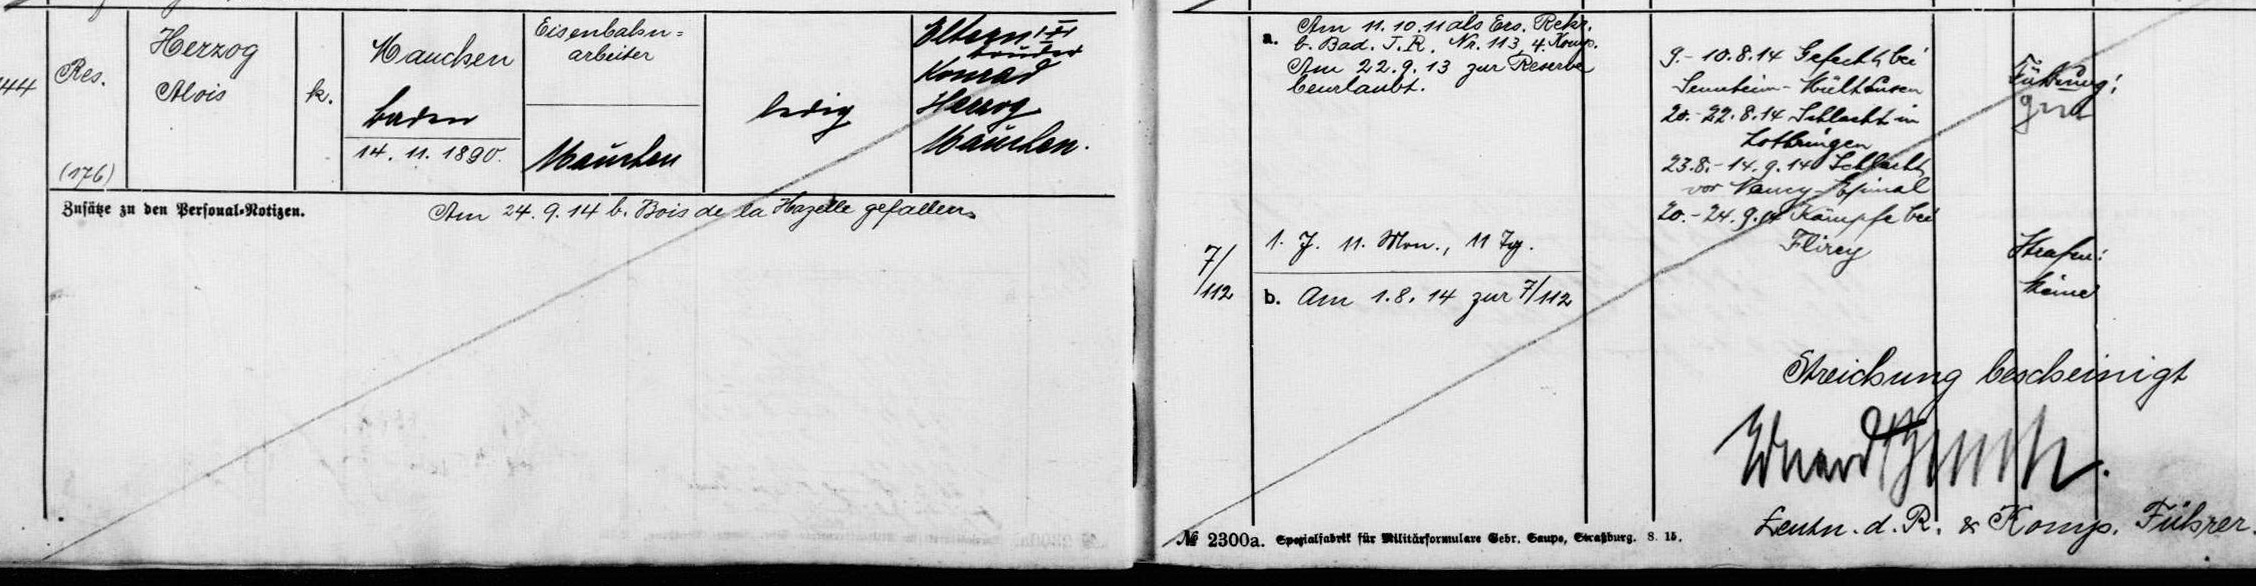 44
Res.
(176)
Herzog
Alois
k.
Mauchen
Baden
14. 11. 1890.
Eisenbahn=
arbeiter
Mauchen
ledig
Eltern: ††
Bruder
Konrad
Herzog
Mauchen.
Zusätze zu den Personal-Notizen.
Am 24. 9. 14 b. Bois de la Hazelle gefallen.
7/112
a. Am 11. 10. 11 als Ers. Rekr.
b. Bad. J. R. Nr. 113, 4. Komp.
Am 22. 9. 13 zur Reserve
beurlaubt.
1. J. 11. Mon., 11 Tg.
b. Am 1. 8. 14 zur 7/112
9.- 10.8.14 Gefecht bei
Sennheim - Mülhausen
20.- 22.8.14 Schlacht in
Lothringen
23.8.- 14.9.14 Schlacht
vor Nancy - Epinal
20.- 24.9.14 Kämpfe bei
Flirey
Führung:
gut
Strafen:
keine
Streichung bescheinigt
Leutn. d. R. & Komp. Führer.
№ 2300a. Spezialfabrik für Militärformulare Gebr. Gaupo, Straßburg. 8. 15.